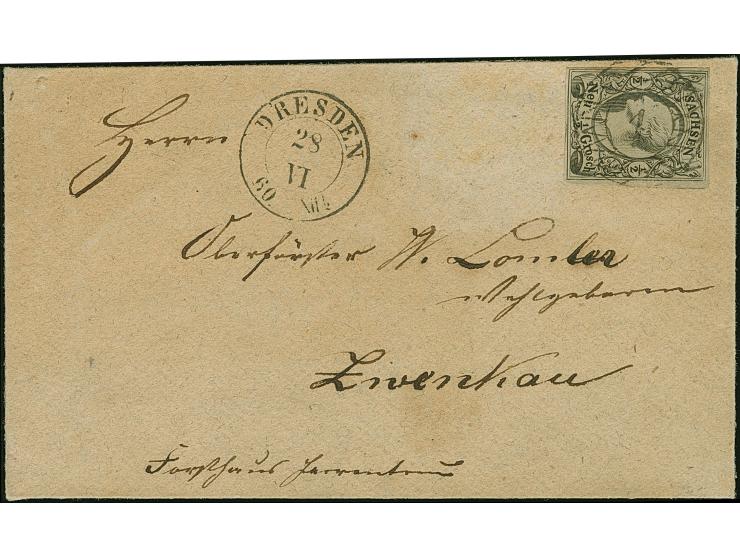 Herrn
DRESDEN
28
VI
60.
SACHSEN
½ ½
Neu-Grosch
Oberförster W. Lomler
Wohlgeboren
Zwenkau
Forsthaus